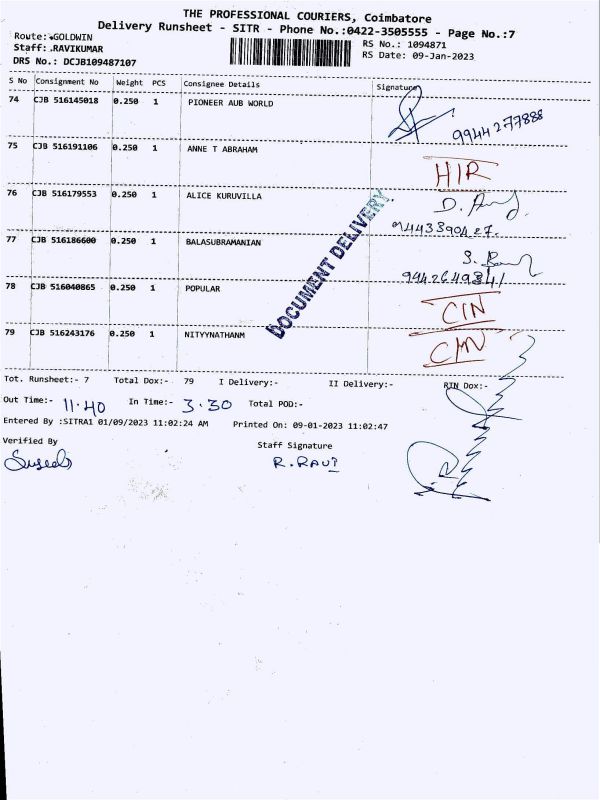 THE PROFESSIONAL COURIERS, Coimbatore
Delivery Runsheet - SITR - Phone No.:0422-3505555 - Page No.:7
Route: GOLDWIN
Staff: .RAVIKUMAR
DRS No.: DCJB109487107
RS No.: 1094871
RS Date: 09-Jan-2023
S No Consignment No Weight PCS Consignee Details Signature
74 CJB 516145018 0.250 1 PIONEER AUB WORLD
9944277888
75 CJB 516191106 0.250 1 ANNE T ABRAHAM
76 CJB 516179553 0.250 1 ALICE KURUVILLA
9443390427.
77 CJB 516186600 0.250 1 BALASUBRAMANIAN
9942649841
78 CJB 516040865 0.250 1 POPULAR
79 CJB 516243176 0.250 1 NITYYNATHANM
DOCUMENT DELIVERY.
Tot. Runsheet:- 7 Total Dox:- 79 I Delivery:- II Delivery:- RTN Dox:-
Out Time:- 11.40 In Time:- 3.30 Total POD:-
Entered By :SITRA1 01/09/2023 11:02:24 AM Printed On: 09-01-2023 11:02:47
Verified By
Staff Signature
R.RAVI